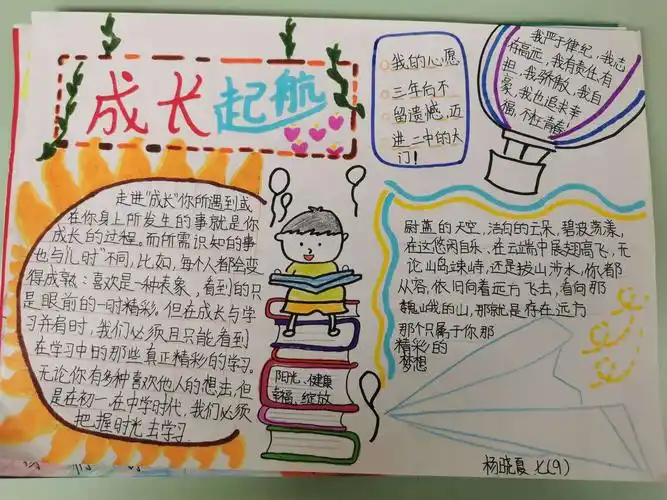 成长起航
我的心愿
三年后不
留遗憾,迈
进二中的大
门!
我严于律纪,我志
存高远,我有责任,有
担,我骄傲,我自
豪,我也追求幸
福,不枉青春!
走进"成长"你所遇到或
在你身上所发生的事就是你
成长的过程。而所需识知的事
也与"儿时"不同,比如,每个人都会变
得成熟:喜欢是一种表象,看到的只
是眼前的一时精彩,但在成长与学
习并有时,我们必须且只能看到
在学习中的那些真正精彩的学习。
无论你有多种喜欢他人的想法,但
是在初一,在中学时代,我们必须
把握时光去学习
阳光、健康
幸福、绽放
尉蓝的天空,洁白的云朵,碧波荡漾,
在这悠闲自乐、在云端中展翅高飞,无
论山鸟竦峙,还是拔山涉水,你都
从容,依旧向着远方飞去,看向那
巍峨的山,那就是存在远方
那个只属于你那
精彩的
梦想
杨晓夏 七(9)